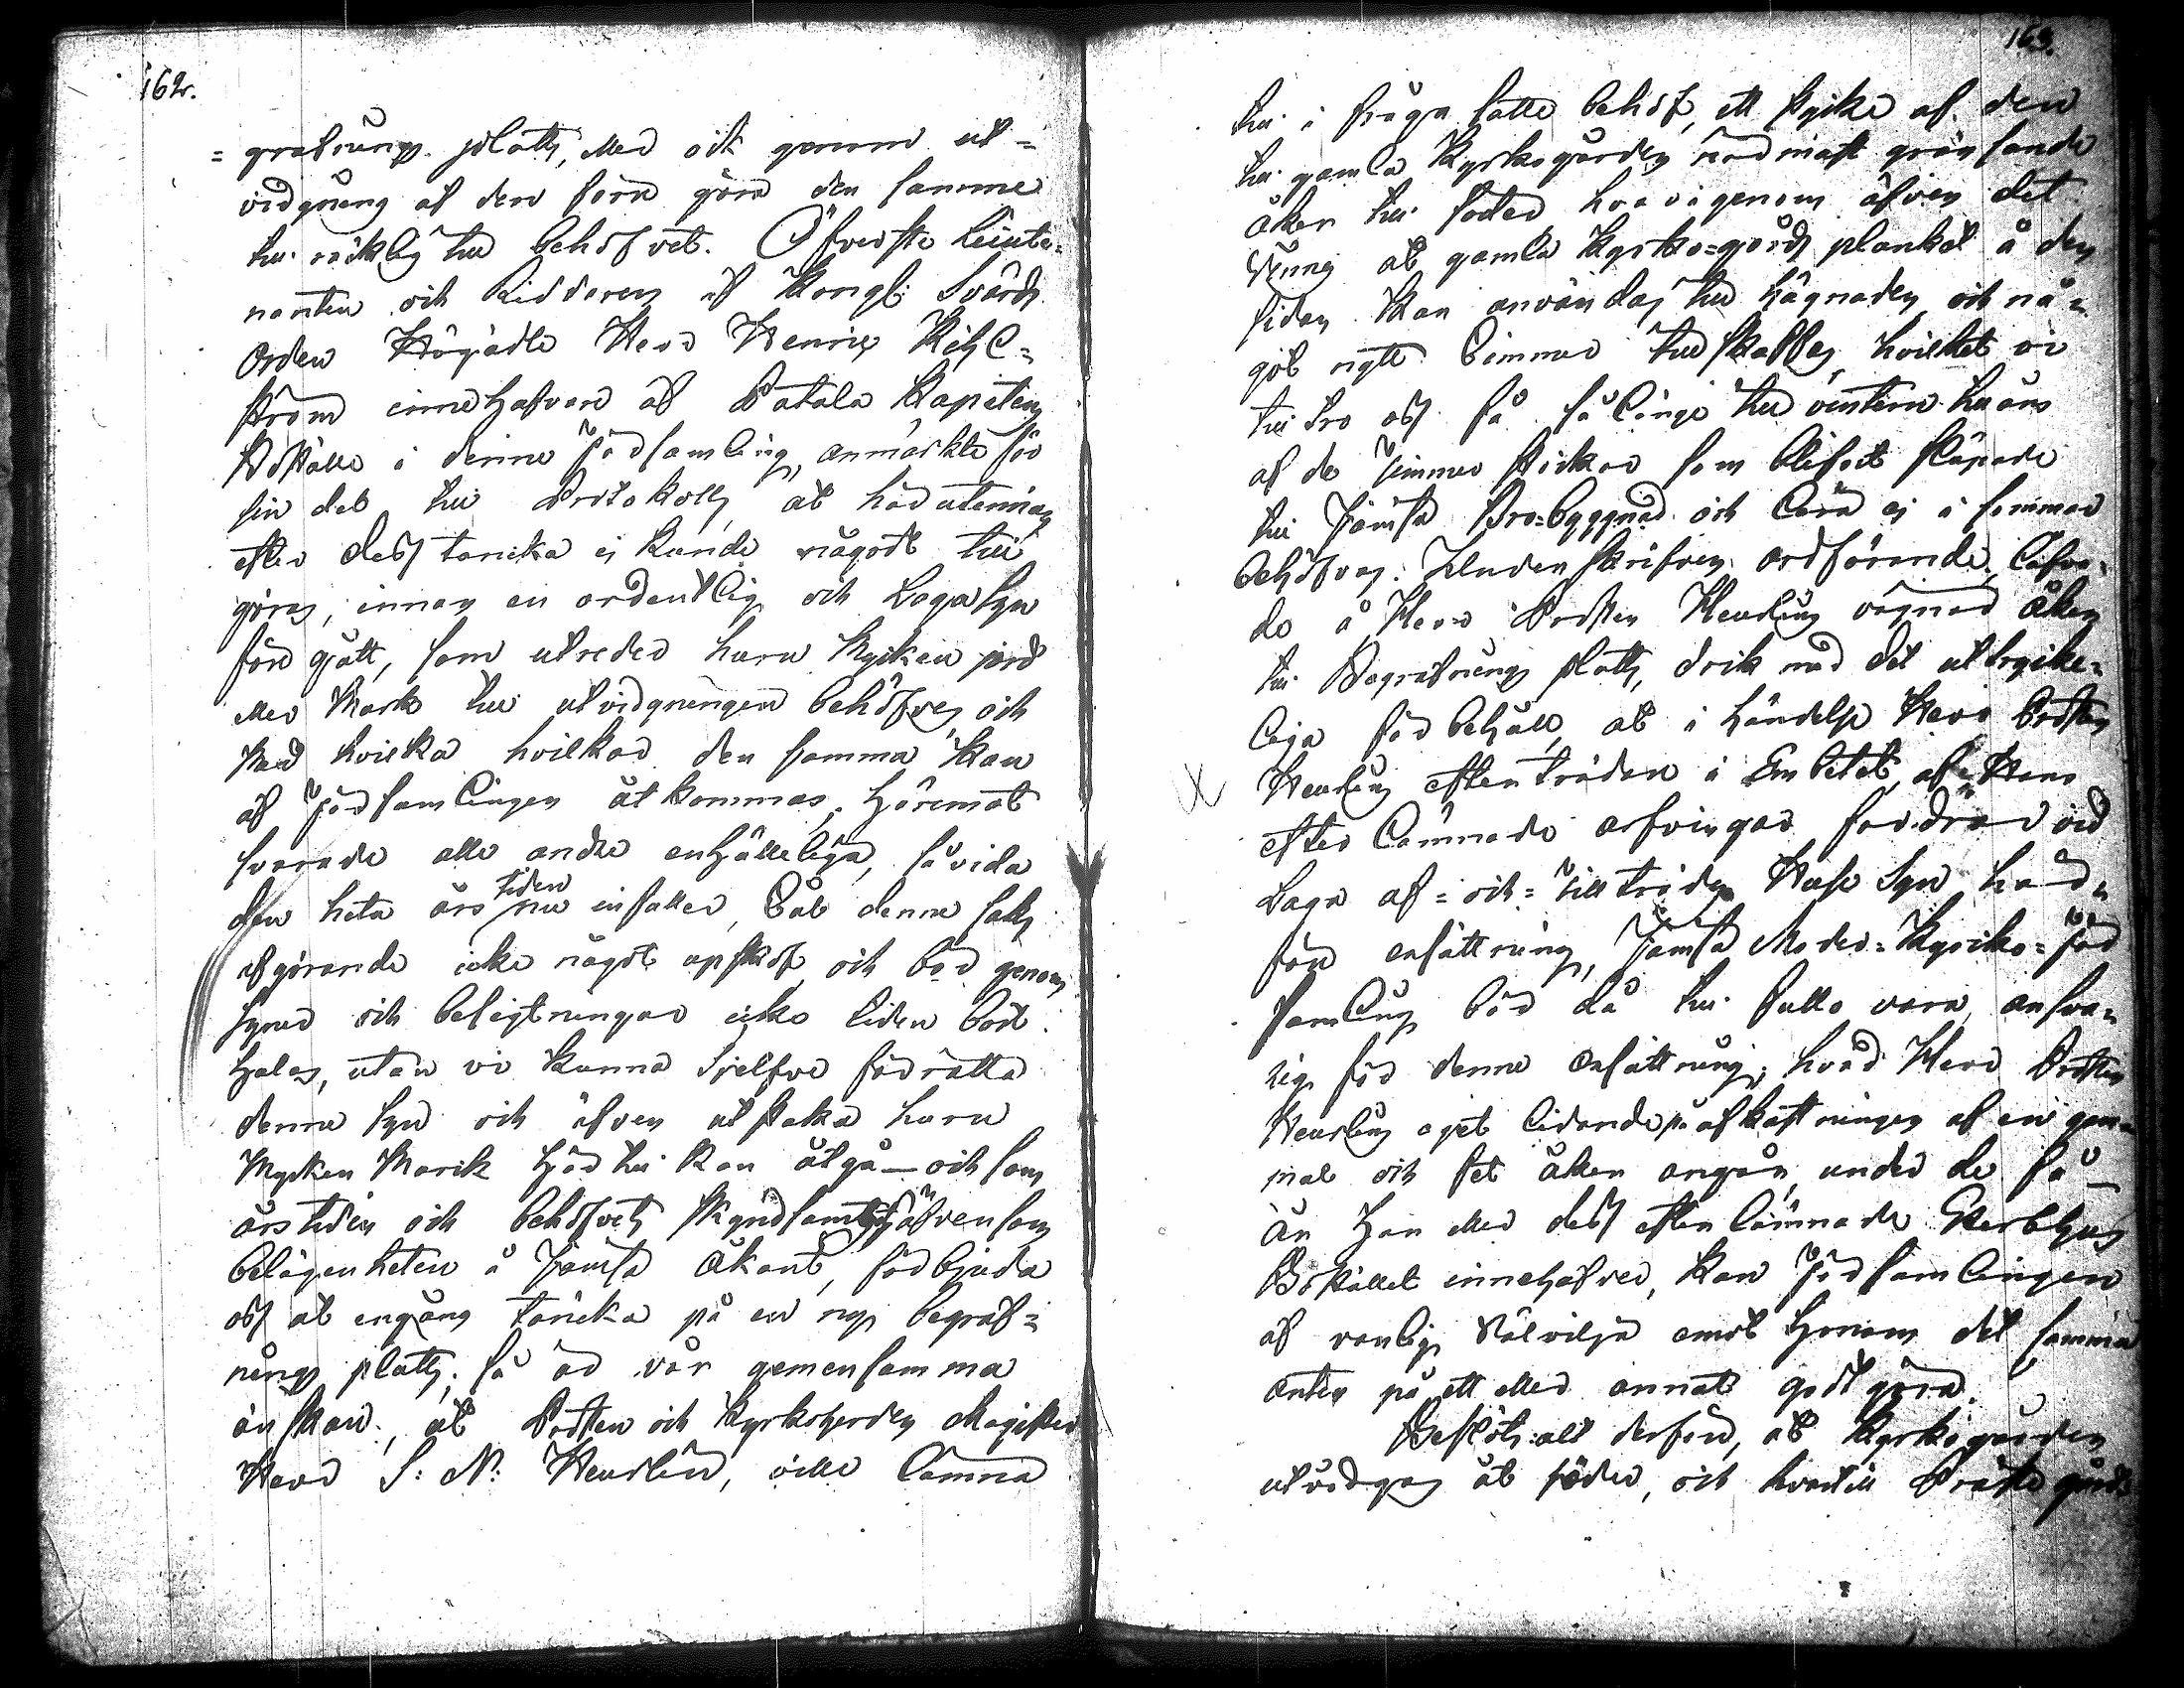 162.
=grafnings platts, eller ock genom ut=
vidgning af den förra göra den samma
till räcklig till behofvet. Öfverste Lieute=
nanten och Riddaren af Kongl: Svärds
Orden Högädle Herr Henric
ström innehafvare af Patala Kapitens
Boställe i denne Församling, anmärkte för
sin del till Protokolls, at härutinnan
efter dess tancka ej kunde något till
göras, innan en ordentlig och Laga Syn
före gått, som utreder huru mycken jord
eller Mark till utvidgningen behöfves, och
på hvilka vilkor den samma kan
af Församlingen åtkommas. Häremot
svarade alle andre enhälleligen, så vida
den heta års tiden nu infaller, tål denne saks
afgörande icke något upskof och bör genom
syner och besigtningar icke tiden bort
halas, utan vi kunna sielfve förrätta
denna syn och äfven utstaka huru
Mycken Mark här till kan åtgå _ och som
årstiden och behofvets skyndsamhet, äfvensom
belägenheten å Jämsä åkant, förbjuda
oss at engång täncka på en ny begraf=
nings platts; så är vår gemensamma
önskan, at Prosten och Kyrkoherden Magister
Herr S: N: Heurlin, ville lämna
163.
till i fråga satte behof, ett stycke af den
till gamla Kyrkogården näd mast gränsande
åker till söder hvarigenom äfven det
at gamla Kyrko=gårds plankat å den
sidan kan användas till hägnaden och nå=
got nytt timmer tillskaffas, hvilket vi
till tro oss få så länge till vintern till åns
af de timmer stockar som blifvit släpade
till Jämsä Bro=byggnad och lära ej i sommar
behöfvas. Undenskrifven ordförande, lofva=
de å Herr Prosten Heurlins vägnar åken
till Begrafnings platts, dock med det uttrycke=
liga förbehåll, at i händelse Herr Prosten
Heurlins efterträdare i Embetet, af Hans
efter lämnade arfvingar fordrar vid
Laga af= och= tillträdes Huse Syn, här=
före ersättning, Jämsä Moder=Kyrko=För
samling bör då till fullo vara ansva=
rig för denne ersättning; hvad Herr Prosten
Heurlins eget lidande på afkastningen af en gam=
mal och fet åker angår under de få _
år Han eller dess efterlämnade Sterbhus
Bostället innehafver, kan Församlingen
af vanlig välvilja emot honom det samma
anten på ett eller annat godtgöra.
Beslöts alt derföre, at kyrkogården
utvidgas åt söder, och hvartill Prästegårds